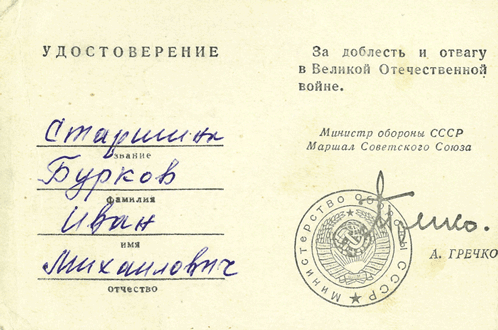 УДОСТОВЕРЕНИЕ
Старшина
звание
Бурков
фамилия
Иван
имя
Михайлович
отчество
За доблесть и отвагу
в Великой Отечественной
войне.
Министр обороны СССР
Маршал Советского Союза
Министерство Обороны СССР
Гречко.
А. ГРЕЧКО